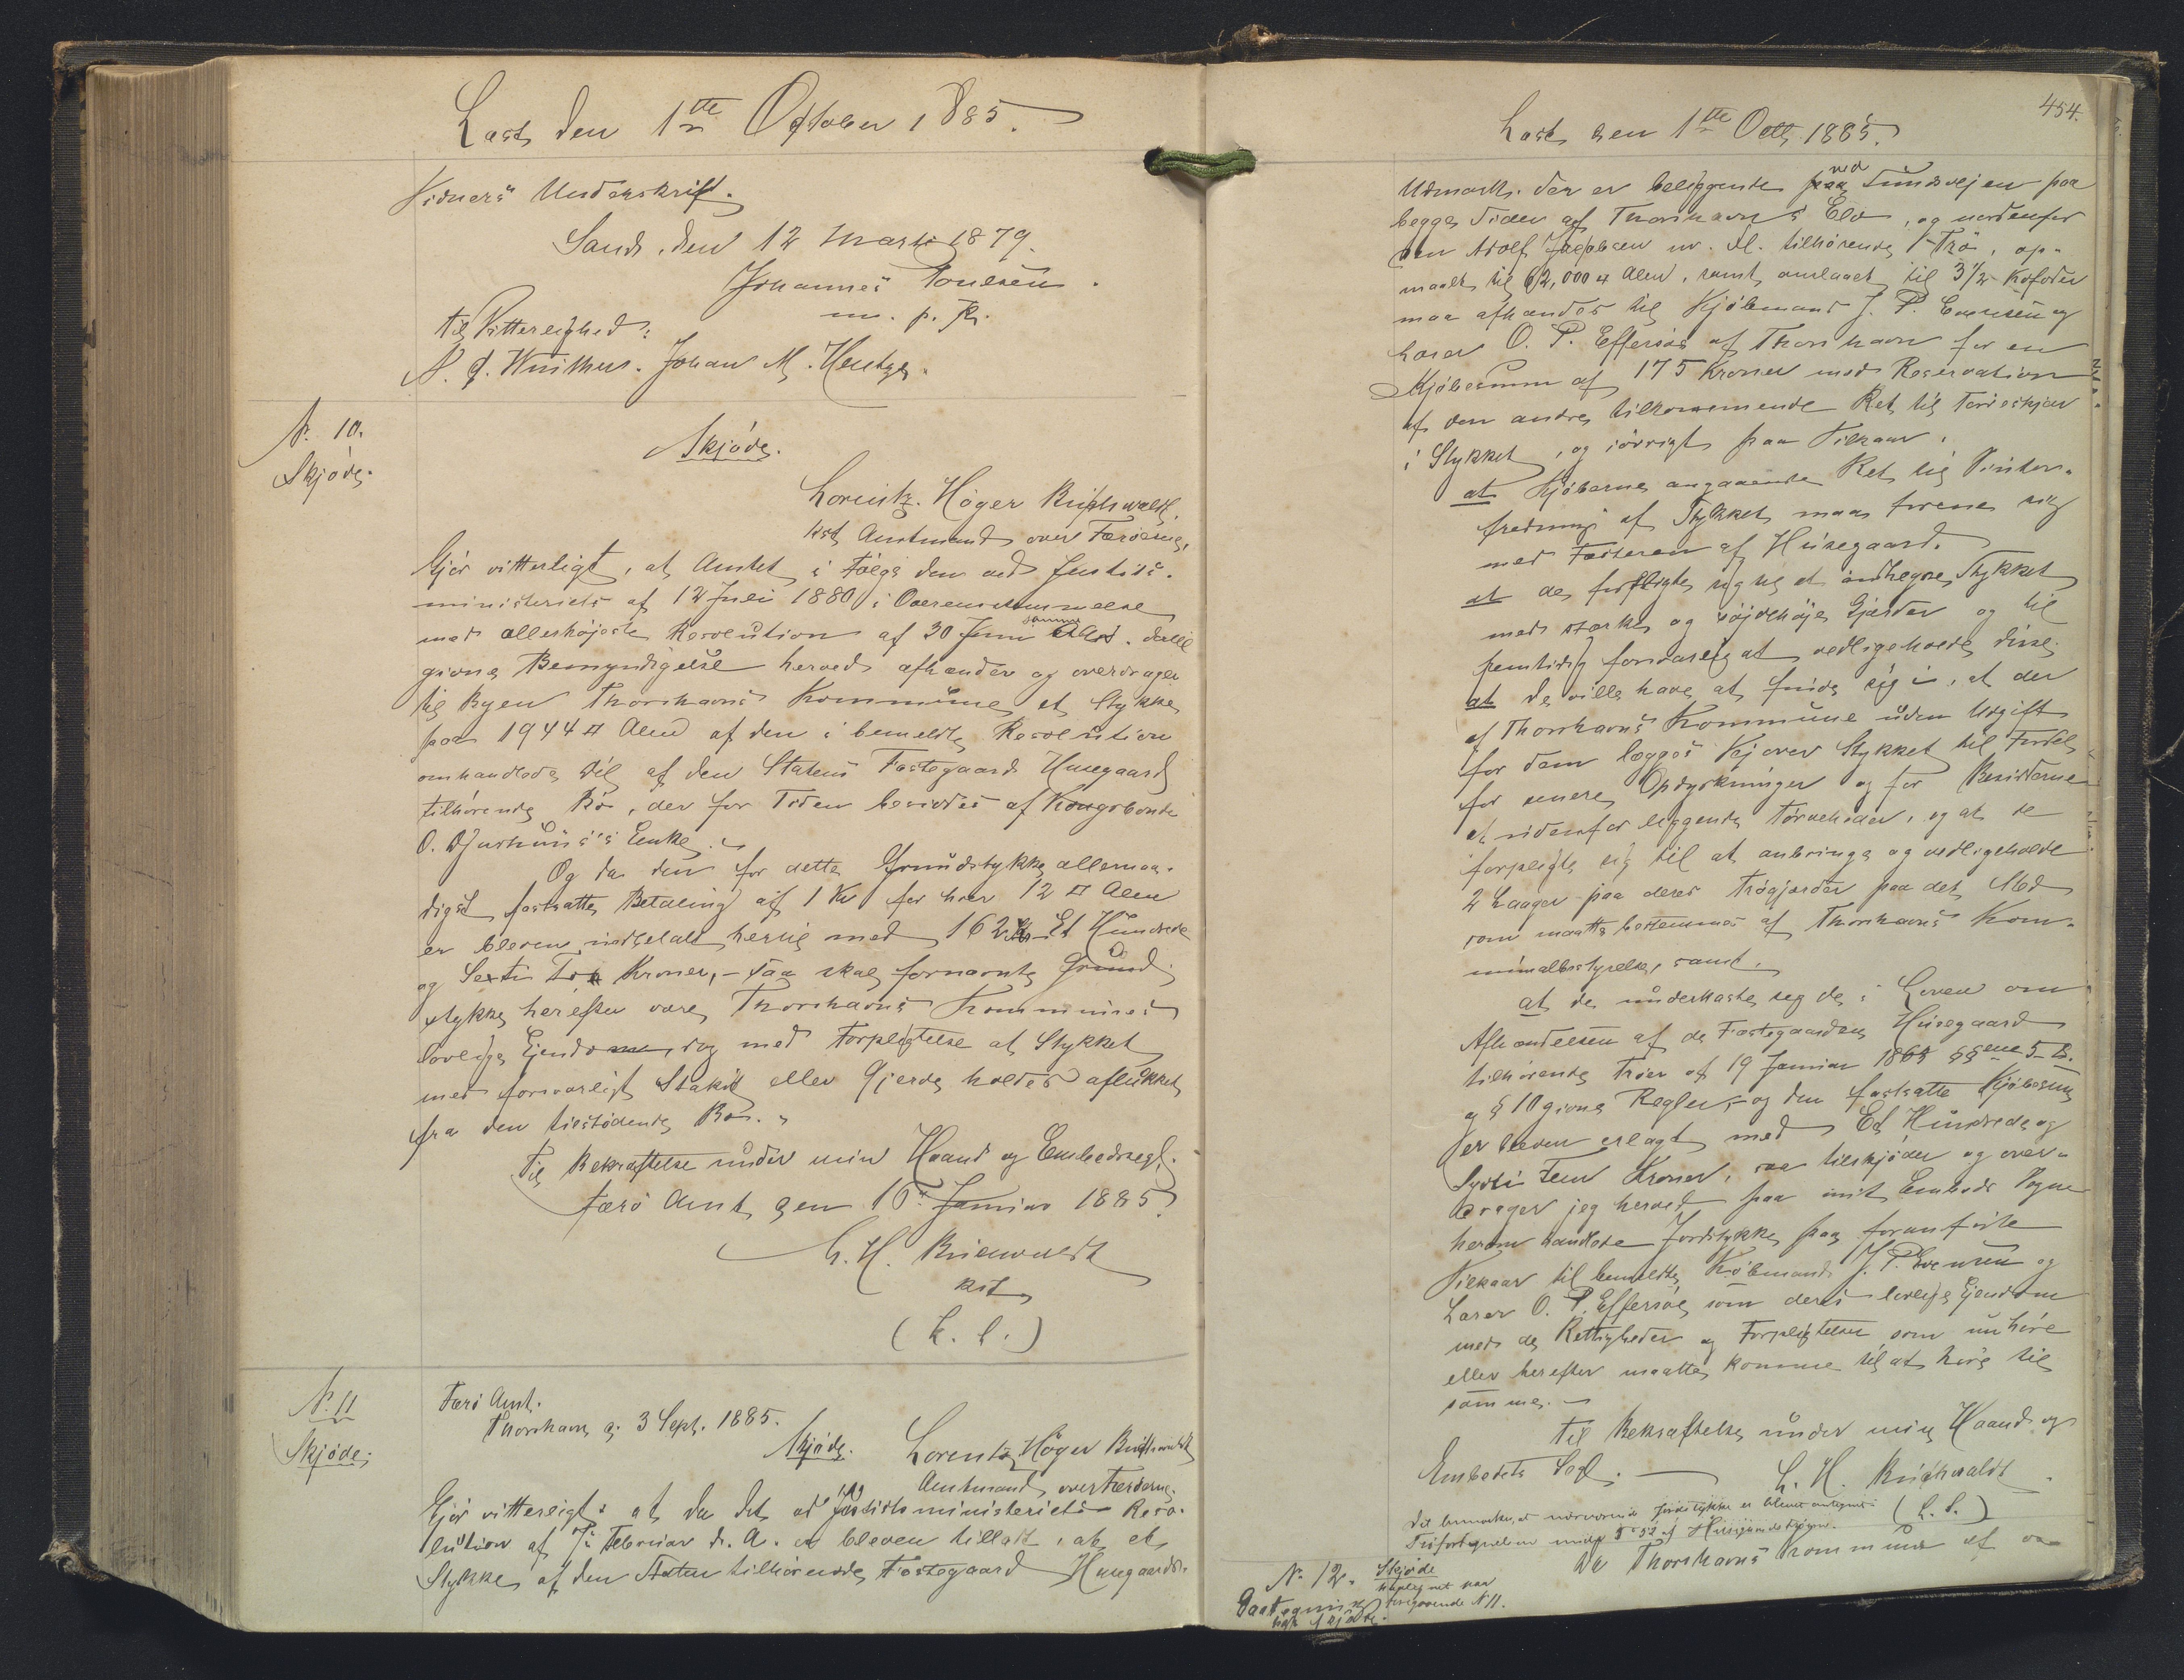 Læst den 1ste October 1885.
Vidners Underskrift.
Sand, den 12 Marts 1879.
Johannes Poulsen.
m. p. P.
Til Vitterlighed:
Johan M. Hentze.
No. 10.
Skjøde.
Skjøde.
Lorentz Höyer Buchwaldt,
kst Amtmand over Færøerne,
Gjør vitterligt, at Amtet i Følge den ved Justits-
ministeriets af 12 Juli 1880 i Overensstemmelse
med allerhøjeste Resolution af 30 Juni samme Aar dertil
givne Bemyndigelse herved afhænder og overdrager
til Byen Thorshavns Kommune et Stykke
paa 1944 □ Alen af den i bemeldte Resolution
omhandlede Del af den Statens Fæstegaard Husegaard
tilhørende Bø, der for Tiden besiddes af Kongsbonde
O. Djurhuus's Enke.
Og da den for dette Grundstykke allernaa-
digst fastsatte Betaling af 1 Kr for hver 12 □ Alen
er bleven indbetalt hertil med 162 Kr Et Hundrede
og Sexti To Kroner, - saa skal fornævnte Grund-
stykke herefter være Thorshavns Kommunes
lovlige Ejendom, dog med Forpligtelse at Stykket
med forsvarligt Stakit eller Gjerde holdes aflukket
fra den tilstødende Bø.
Til Bekræftelse under min Haand og Embedssegl.
Færø Amt, den 15 Januar 1885.
L. H. Buchwaldt
kst
(L. S.)
No. 11
Skjøde.
Færø Amt.
Thorshavn d. 3 Sept. 1885.
Skjøde. Lorentz Höyer Buchwaldt
Amtmand over Færøerne,
Gjør vitterligt: at da det ved Justitsministeriets Reso-
lution af Februar d. A. er bleven tilladt, at et
Stykke af den Staten tilhørende Fæstegaard Husegaards
454.
Læst den 1ste Octb 1885.
Udmark, der er beliggende ved Sundsvejen paa
begge Sider af Thorshavns Elv, og nordenfor
den Adolf Jacobsen m. Fl. tilhørende Trø, op-
maalt til 62,000 □ Alen, samt anslaaet til 3 1/2 Kofoder
maa afhændes til Kjøbmand J. P. Evensen og
Lærer O. P. Effersøe af Thorshavn for en
Kjøbesum af 175 Kroner med Reservation
af den andre tilkommende Ret til Tørveskjær
i Stykket, og iøvrigt paa Vilkaar,
at Kjøberne angaaende Ret til Vinter-
fredning af Stykket maa forene sig
med Fæsteren af Husegaard.
at de forpligte sig til at indhegne Stykket
med stærke og høje Gjærder og til
fremtidig forsvarlig at vedligeholde disse,
at de ville have at finde sig i, at der
af Thorshavns Kommune uden Udgift
for dem lægges Vej over Stykket til Fordel
for senere Opdyrkninger og for Besidderne
af udenfor liggende Tørveheder, og at de
forpligte sig til at anbringe og vedligeholde
2 Laager paa deres Trøgjærder paa det Sted
som maatte bestemmes af Thorshavns Kom-
munalbestyrelse, samt.
at de underkaste sig de i Loven om
Afhændelsen af de Fæstegaarden Husegaard
tilhørende Trøer af 19 Januar 1863 §§ene 5-8.
og § 10 givne Regler, og den fastsatte Kjøbesum
er bleven erlagt med Et Hundrede og
Sytti Fem Kroner, saa tilskjøder og over-
drager jeg herved paa mit Embeds Vegne
heromhandlede Jordstykke paa foranførte
Vilkaar til bemeldte Kjøbmand J. P. Evensen og
Lærer O. P. Effersøe som deres lovlige Ejendom
med de Rettigheder og Forpligtelser som nu høre
eller herefter maatte komme til at høre til
samme.
Til Bekræftelse under min Haand og
Embedets Segl. L. H. Buchwaldt
(L. S.)
Det bemærkes, at nærværende Jordstykke er blevet antegnet i
Trøfortegnelsen under No 52 af Husegaardstrøerne.
No. 12. Skjøde
foregaaende No 11.
Da Thorshavns Kommune af